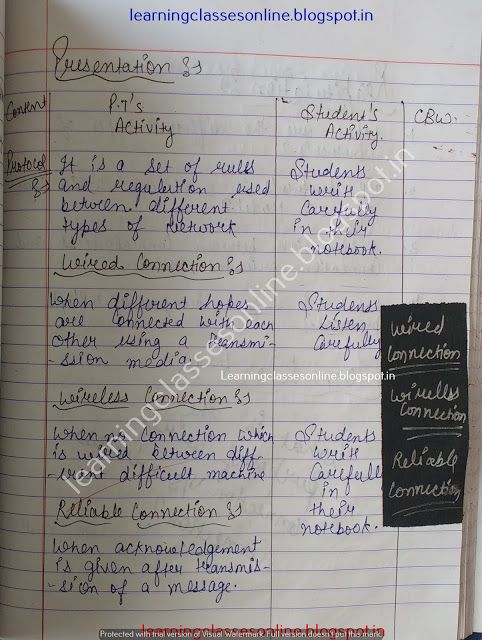 learningclassesonline.blogspot.in
Presentation :-
Content
P.T's
Activity
Student's
Activity.
CBW.
Protocol
:-
It is a set of rules
and regulation used
between different
types of network
Students
writ
Carefully
in their
notebook.
Wired Connection :-
When different hopes
are connected with each
other using a transmi-
-ssion media.
Students
Listen
Carefully
Wired
Connection
Learningclassesonline.blogspot.in
Wireless Connection :-
Wirelss
Connection
When no Connection which
is wired between diff-
-erent difficult machine
Students
writ
Carefull
in
their
notebook.
Reliable
Connection
Reliable Connection :-
When acknowledgement
is given after transmis-
-sion of a message.
learningclassesonline.blogspot.in
learningclassesonline.blogspot.in
Protected with trial version of Visual Watermark. Full version doesn't put this mark.